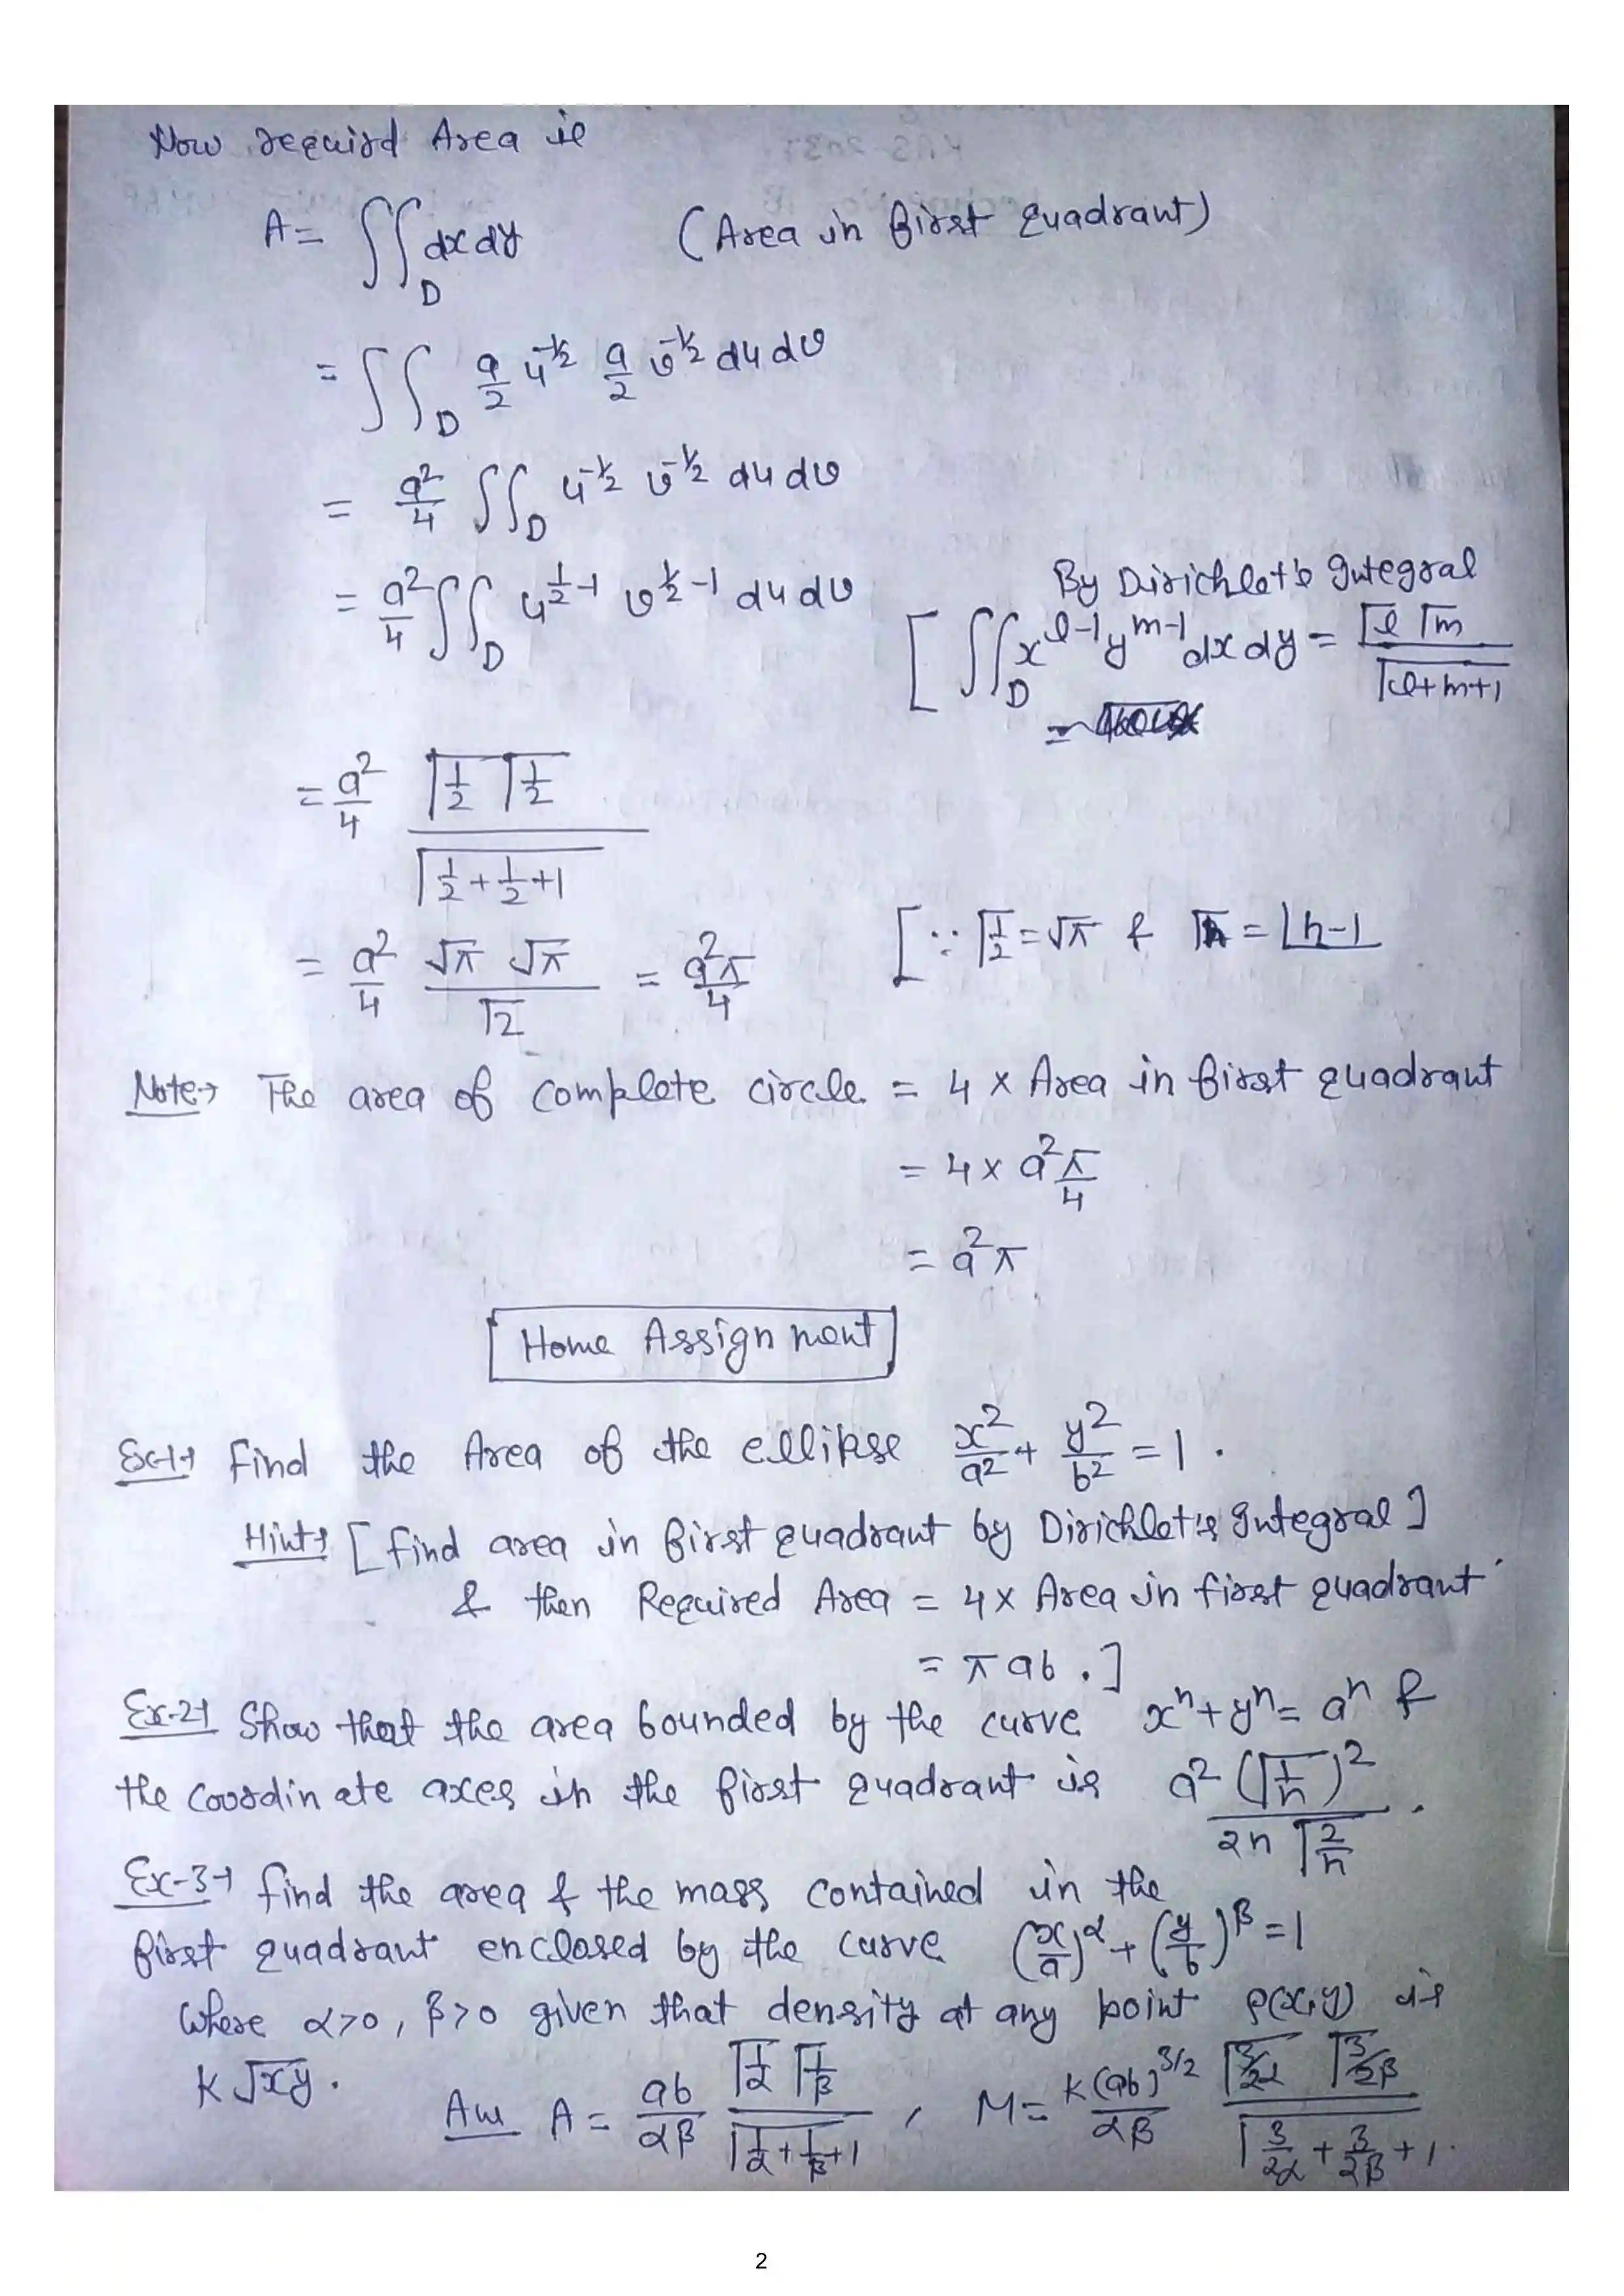 Now requird Area is
A = ∬_D dx dy (Area in first quadrant)
= ∬_D a/2 u^{-1/2} a/2 v^{-1/2} du dv
= a²/4 ∬_D u^{-1/2} v^{-1/2} du dv
= a²/4 ∬_D u^{1/2-1} v^{1/2-1} du dv
By Dirichlet's Integral
[ ∬_D x^{l-1} y^{m-1} dx dy = Γl Γm / Γl+m+1
= a²/4 Γ1/2 Γ1/2 / Γ1/2+1/2+1
= a²/4 √π √π / Γ2 = a²π/4 [ ∵ Γ1/2 = √π & Γn = ∟n-1
Note→ The area of complete circle = 4 × Area in first quadrant
= 4 × a²π/4
= a²π
[Home Assignment]
Ex-1→ Find the Area of the ellipse x²/a² + y²/b² = 1 .
Hint→ [Find area in first quadrant by Dirichlet's Integral]
& then Required Area = 4 × Area in first quadrant
= π ab . ]
Ex-2→ Show that the area bounded by the curve xⁿ + yⁿ = aⁿ &
the coordinate axes in the first quadrant is a² (Γ1/n)² / 2n Γ2/n .
Ex-3→ find the area & the mass contained in the
first quadrant enclosed by the curve (x/a)^α + (y/b)^β = 1
Where α>0, β>0 given that density at any point ρ(x,y) is
K √xy .
Ans A = ab/αβ Γ1/α Γ1/β / Γ1/α+1/β+1 , M = K(ab)^{3/2}/αβ Γ3/2α Γ3/2β / Γ3/2α+3/2β+1 .
2